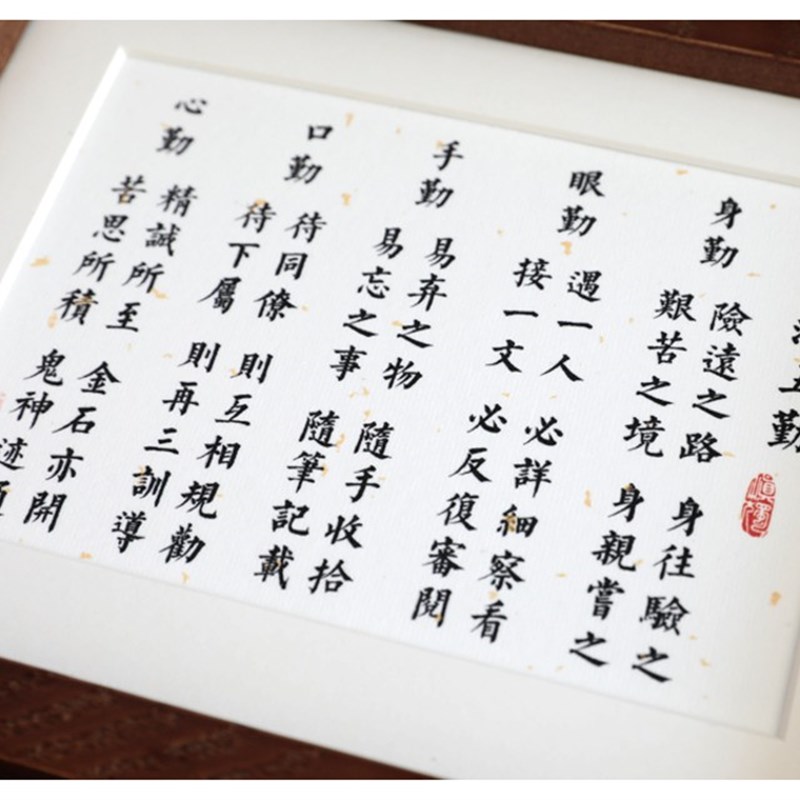 五勤
身勤
險遠之路 身往驗之
艱苦之境 身親嘗之
眼勤
遇一人 必詳細察看
接一文 必反復審閱
手勤
易弃之物 隨手收拾
易忘之事 隨筆記載
口勤
待同僚 則互相規勸
待下屬 則再三訓導
心勤
精誠所至 金石亦開
苦思所積 鬼神迹